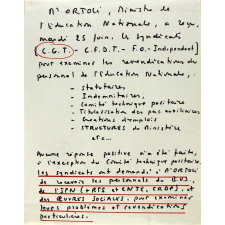 Mr ORTOLI, Ministre de
l'Education Nationale, a reçu,
mardi 25 juin, les syndicats
C.G.T. - C.F.D.T - F.O - Indépendant
pour examiner les revendications du
personnel de l'Education Nationale,:
- statutaires,
- Indemnitaires,
- Comité technique paritaire
- Titularisation des pers auxiliaires
- Créations d'emplois
- STRUCTURES du Ministère
etc...
Aucune réponse positive n'a été faite, à
l'exception du Comité technique paritaire.
Les syndicats ont demandé, à Mr ORTOLI
de recevoir les personnels du B.U.S.
de l'IPN (+ RTS et CNTE, CRDP), et
des ŒUVRES SOCIALES, pour examiner
leurs problèmes et revendications
particuliers.